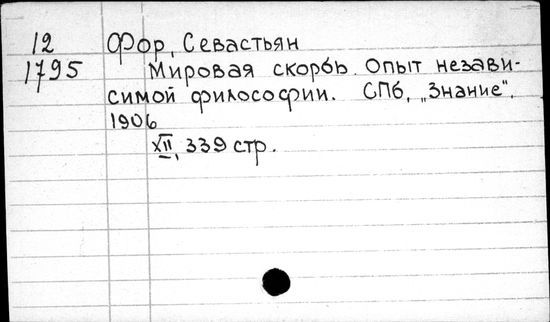 12 Фор, Севастьян
1795 Мировая скорбь. Опыт незави-
симой философии. СПб, „Знание",
1906
XII, 339 стр.